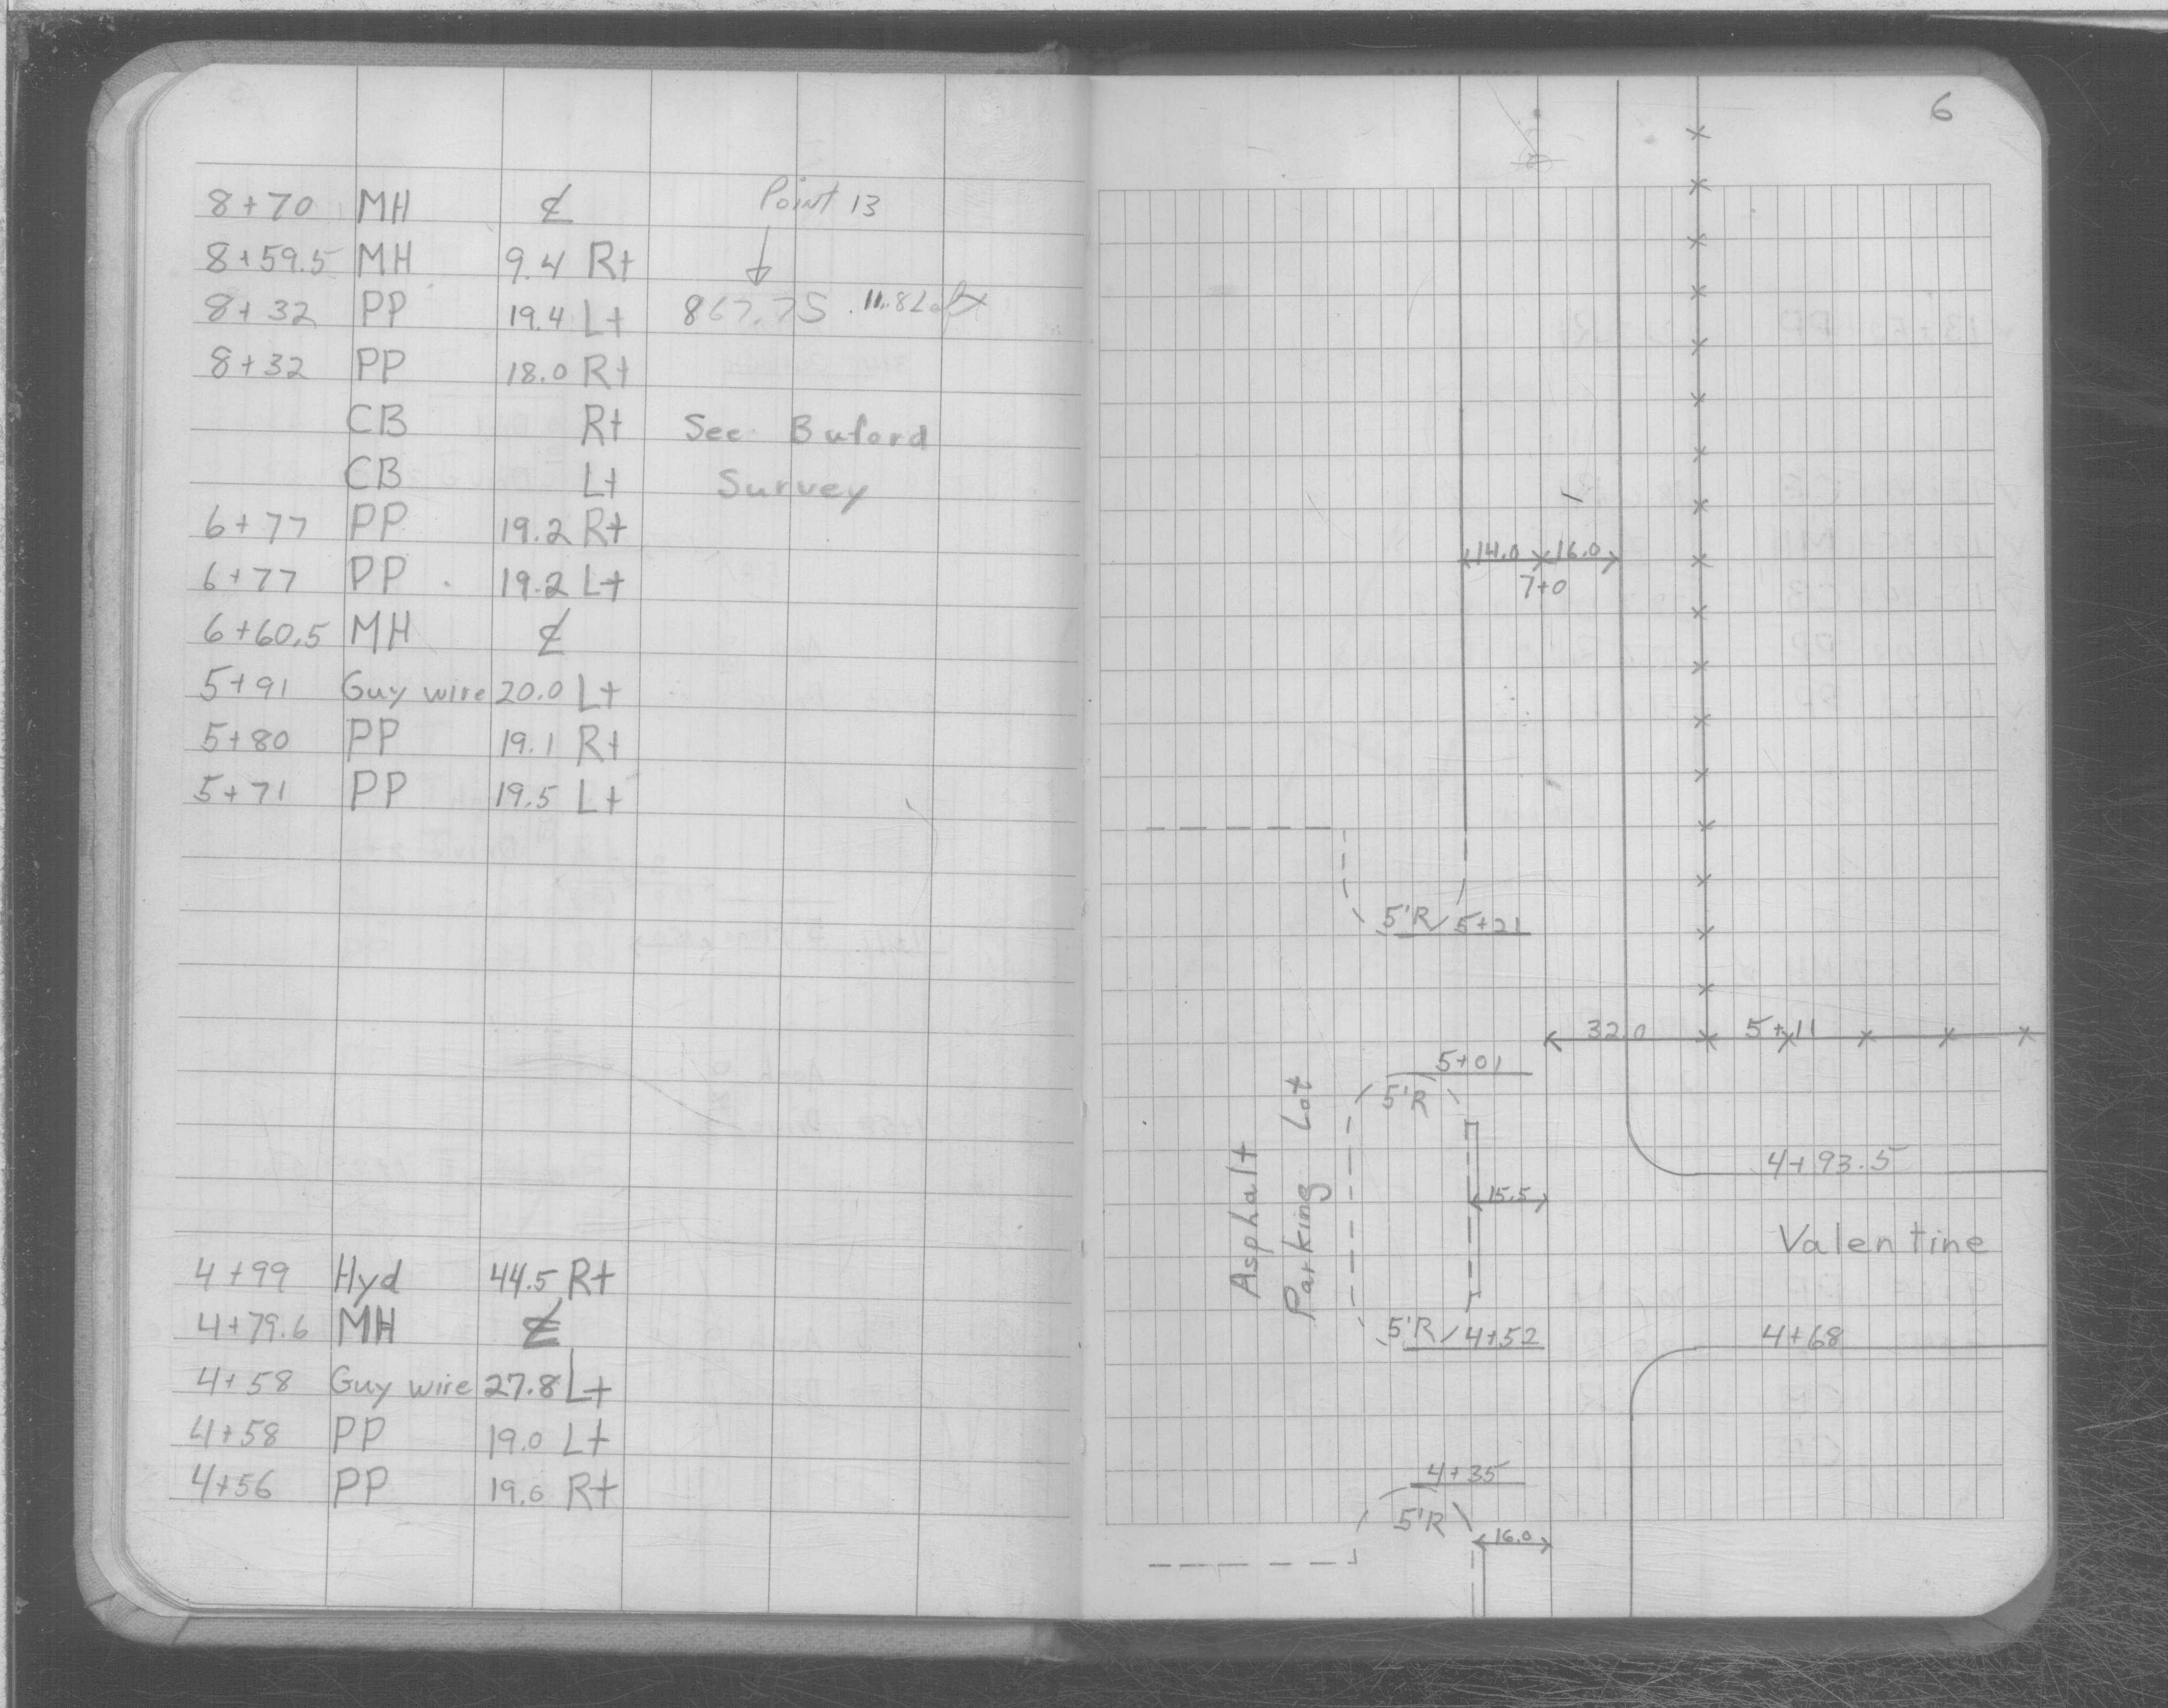 8+70 MH ℄ Point 13
8+59.5 MH 9.4 Rt
8+32 PP 19.4 Lt 867.75 11.8 Left
8+32 PP 18.0 Rt
CB Rt See Buford
CB Lt Survey
6+77 PP 19.2 Rt
6+77 PP 19.2 Lt
6+60.5 MH ℄
5+91 Guy wire 20.0 Lt
5+80 PP 19.1 Rt
5+71 PP 19.5 Lt
4+99 Hyd 44.5 Rt
4+79.6 MH ℄
4+58 Guy wire 27.8 Lt
4+58 PP 19.0 Lt
4+56 PP 19.6 Rt
6
14.0 16.0
7+0
5'R 5+21
32.0 5+11
5+01
5'R
4+93.5
15.5
Asphalt
Parking Lot
Valentine
5'R 4+52
4+68
4+35
5'R
16.0